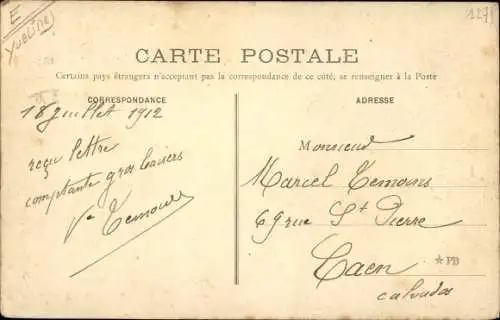 E
Yvelines
127
CARTE POSTALE
Certains pays étrangers n'acceptant pas la correspondance de ce côté, se renseigner à la Poste
CORRESPONDANCE
18 Juillet 1912
reçu lettre
comptante gros baisers
Ve
ADRESSE
Monsieur
Marcel
69 rue St Pierre
Caen
calvados
★PB